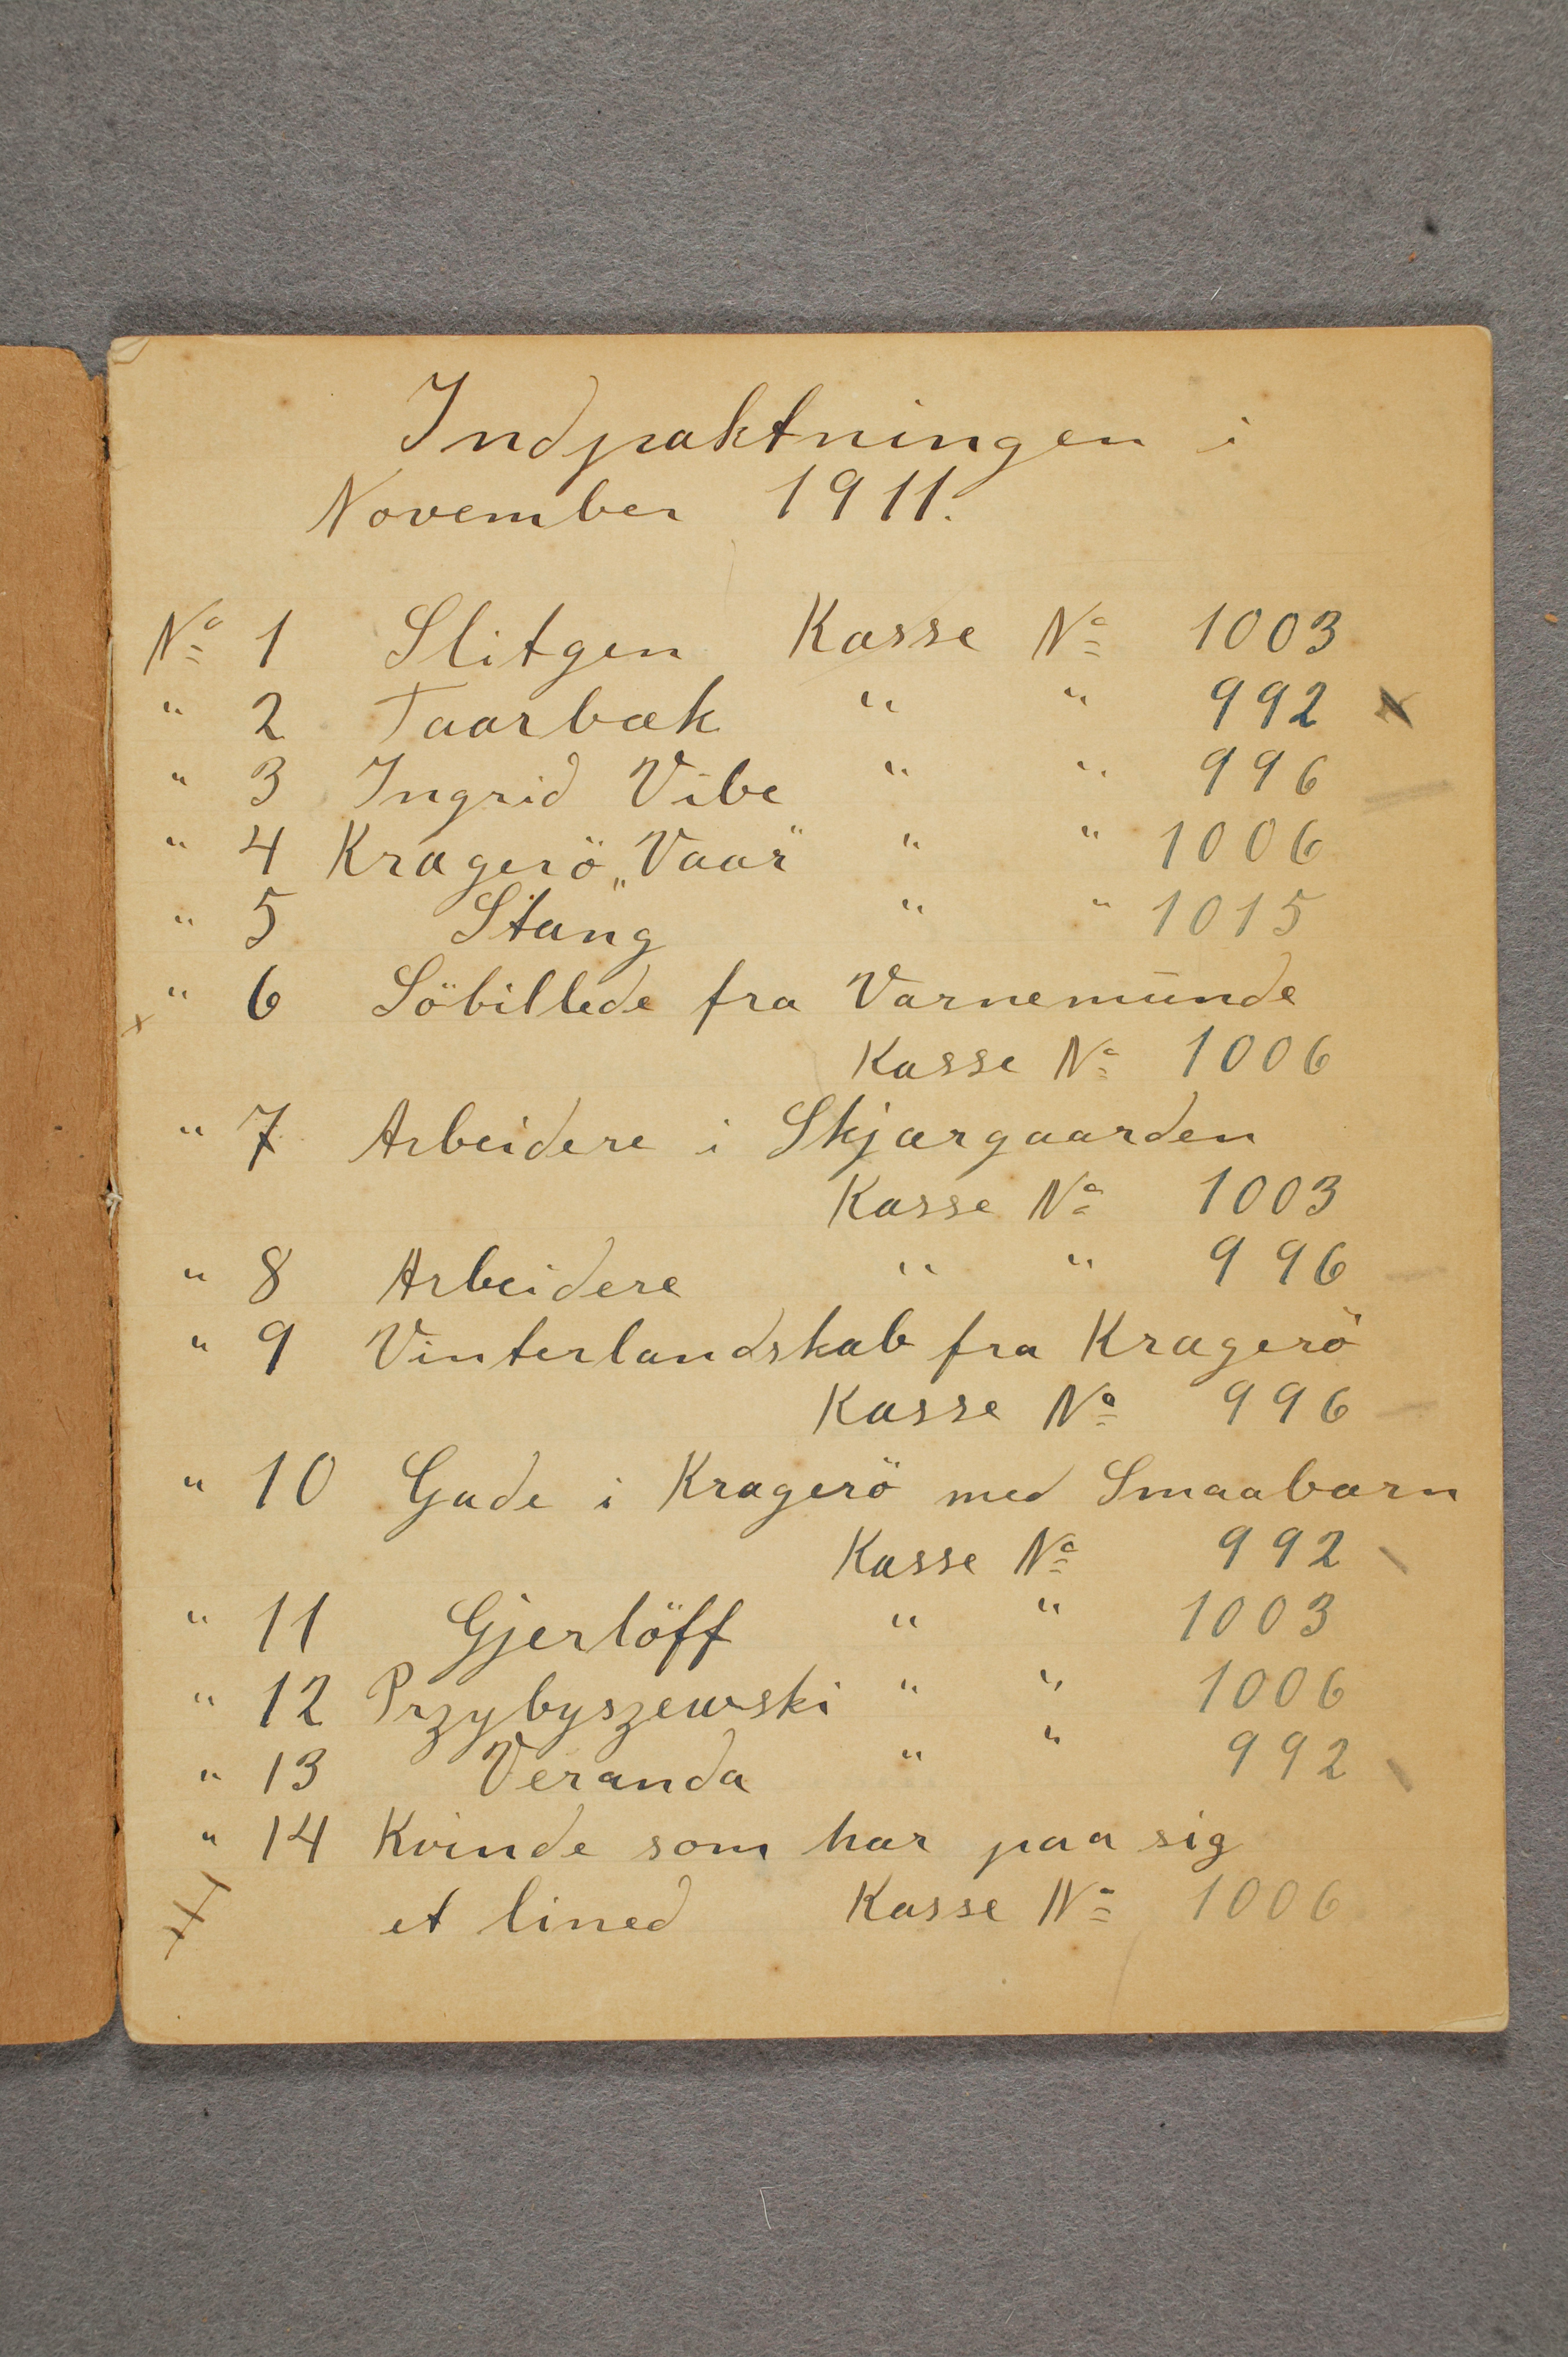 Indpaktningen i
November 1911.
No 1 Slitgen Kasse No 1003
" 2 Taarbæk " " 992 x
" 3 Ingrid Vibe " " 996
" 4 Kragerö „Vaar" " " 1006
" 5 Stang " " 1015
" 6 Söbillede fra Varnemünde
x
Kasse No 1006
" 7 Arbeidere i Skjærgaarden
Kasse No 1003
" 8 Arbeidere " " 996
" 9 Vinterlandskab fra Kragerö
Kasse No 996
" 10 Gade i Kragerö med Smaabarn
Kasse No 992
" 11 Gjerlöff " " 1003
" 12 Przybyszewski " " 1006
" 13 Veranda " " 992
" 14 Kvinde som har paa sig
et lined Kasse No 1006